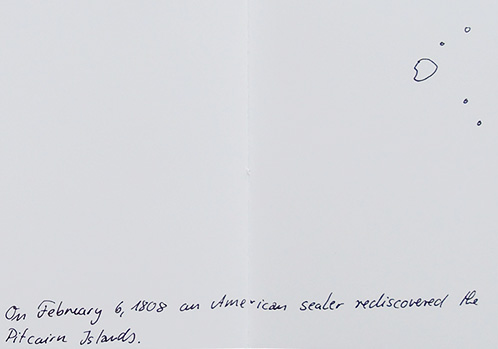 On February 6, 1808 an American sealer rediscovered the
Pitcairn Islands.